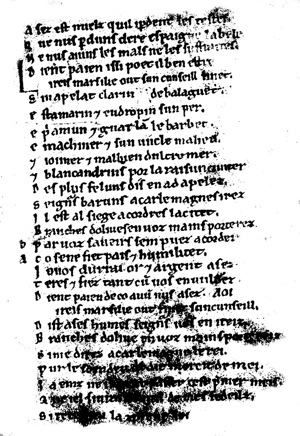 A sez est mielz quil i perdent les testes
Q ue nus perduns clere espaigne la bele
N e nus aiuns les mals ne les suffraites.
D ient paien issi poet il ben estre
reis marsilie out sun cunseill finet.
S in apelat clarin de balaguet
e stamarin 7 eudropin sun per.
e pamun 7 guarlan le barbet.
e machiner 7 sun uncle maheu
7 ioimer 7 malbien dultremer.
7 blancandrins por la raisun cunter
D es plus feluns dis en ad apelez.
S eignurs baruns a carlemagnes irez
I l est al siege a cordres la citet.
B ranches dolives en voz mains porterez
b P ar voz saveirs sem puez acorder
a C o senefiet pais 7 humilitet.
I o vos durrai or 7 argent asez
T eres 7 fiez tant cum vos en vuldrez
D ient paien de co avum nus asez. Aoi
reis marsilie out finet sun cunseill.
D ist a ses humes seignurs vos en ireiz
B ranches dolive en voz mains
S i me direz a carlemagne le rei.
P ur le soen deu quil ait mercit de mei.
I a einz ne passer cest premer meis